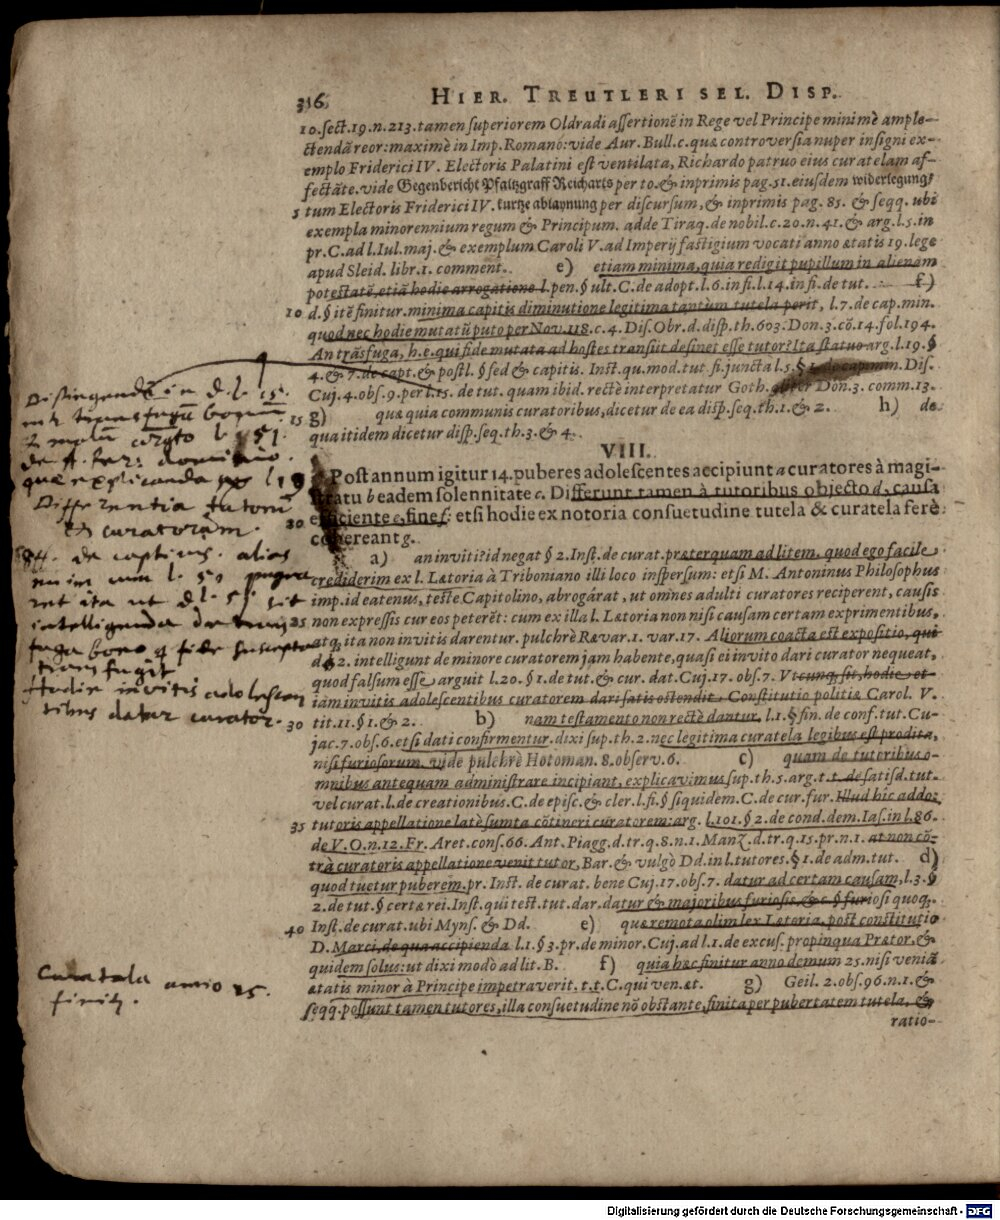 316 HIER. TREUTLERI SEL. DISP.
10.sect.19.n.213.tamen superiorem Oldradi assertionẽ in Rege vel Principe minimè ample-
ctendã reor:maximè in Imp.Romano:vide Aur.Bull.c.quæ controversia nuper insigni ex-
emplo Friderici IV. Electoris Palatini est ventilata, Richardo patruo eius curatelam af-
fectãte.vide Gegenbericht Pfaltzgraff Reicharts per to.& inprimis pag.51.eiusdem widerlegung;
5 tum Electoris Friderici IV. kurtze ablaynung per discursum,& inprimis pag. 85. & seqq. ubi
exempla minorennium regum & Principum. adde Tiraq.de nobil.c.20.n.41.& arg.l.5.in
pr.C.ad l.Iul.maj.& exemplum Caroli V.ad Imperij fastigium vocati anno ætatis 19.lege
apud Sleid. libr.1. comment. e) etiam minima,quia redigit pupillum in alienam
potestatẽ,etiã hodie arrogatione l.pen.§ ult.C.de adopt.l.6.in fi.l.14.in fi.de tut. f)
10 d.§ itẽ finitur.minima capitis diminutione legitima tantùm tutela perit, l.7.de cap.min.
quod nec hodie mutatũ puto per Nov.118.c.4. Dis.Obr.d.disp.th.603.Don.3.cõ.14.fol.194.
An trãsfuga, h.e.qui fide mutata ad hostes transiit desinet esse tutor?Ita statuo arg.l.19.§
4.& 7.de capt.& postl.§ sed & capitis. Inst.qu.mod.tut.fi.juncta l.5.§ 1.de cap.min.Dis.
Cuj.4.obs.9.per l.15. de tut. quam ibid. rectè interpretatur Goth. Don.3. comm.13.
15 g) quæ quia communis curatoribus,dicetur de ea disp.seq.th.1.& 2. h) de
qua itidem dicetur disp.seq.th.3.& 4.
VIII.
Post annum igitur 14.puberes adolescentes accipiunt a curatores à magi-
stratu b eadem solennitate c. Differunt tamen à tutoribus objecto d, causa
20 efficiente e, fine f: etsi hodie ex notoria consuetudine tutela & curatela ferè
cohereant g.
a) an inviti?id negat § 2.Inst.de curat.præterquam ad litem. quod ego facile
crediderim ex l. Lætoria à Triboniano illi loco inspersum: etsi M. Antoninus Philosophus
imp.id eatenus, teste Capitolino, abrogârat, ut omnes adulti curatores reciperent, causis
25 non expressis cur eos peterẽt: cum ex illa l. Lætoria non nisi causam certam exprimentibus,
atq; ita non invitis darentur. pulchrè Rævar.1. var.17. Aliorum coacta est expositio, qui
d.§ 2. intelligunt de minore curatorem jam habente,quasi ei invito dari curator nequeat,
quod falsum esse arguit l.20.§ 1.de tut.& cur.dat.Cuj.17.obs.7. Vtcunq; sit, hodie et-
iam invitis adolescentibus curatorem dari satis ostendit Constitutio politiæ Carol. V.
30 tit.11.§ 1.& 2. b) nam testamento non rectè dantur, l.1.§ fin.de conf.tut.Cu-
jac.7.obs.6.etsi dati confirmentur.dixi sup.th.2.nec legitima curatela legibus est prodita,
nisi furiosorum. vide pulchrè Hotoman. 8.observ.6. c) quam de tutoribus o-
mnibus antequam administrare incipiant, explicavimus sup.th.5.arg.t.t.de satisd.tut.
vel curat.l.de creationibus.C.de episc.& cler.l.fi.§ siquidem.C.de cur.fur. Illud hic addo:
35 tutoris appellatione latè sumta cõtineri curatorem:arg. l.101.§ 2.de cond.dem.Ias.in l.86.
de V.O.n.12.Fr. Aret.cons.66.Ant.Piagg.d.tr.q.8.n.1.Manz.d.tr.q.15.pr.n.1. at non cõ-
trà curatoris appellatione venit tutor, Bar.& vulgò Dd.in l.tutores.§ 1.de adm.tut. d)
quod tuetur puberem.pr. Inst. de curat. bene Cuj.17.obs.7. datur ad certam causam, l.3.§
2.de tut.§ certæ rei.Inst.qui test.tut.dar.datur & majoribus furiosis, &c.§ furiosi quoq;.
40 Inst.de curat.ubi Myns. & Dd. e) quæ remota olim lex Lætoria. post constitutio
D.Marci,de qua accipienda l.1.§ 3.pr.de minor.Cuj.ad l.1.de excus.propinqua Prætor.&
quidem solus:ut dixi modò ad lit.B. f) quia hæc finitur anno demum 25.nisi veniã
ætatis minor à Principe impetraverit.t.t.C.qui ven.æt. g) Geil. 2.obs.96.n.1.&
seqq.possunt tamen tutores,illa consuetudine nõ obstante,finita per pubertatem tutela, &
ratio-
Distingenda in d. l. 15.
de
quæ explicanda l 19
Differentia tutorum
et curatorum.
de captivis. alias
nuim l. 51 pugna
ret ita ut d l. 51 sit
intelligenda de trans
fuga bono fide suscepto
transfugit
Hodie invitis adolescen
tibus datur curator.
Curatela anno 25.
finitur.
Digitalisierung gefördert durch die Deutsche Forschungsgemeinschaft - DFG